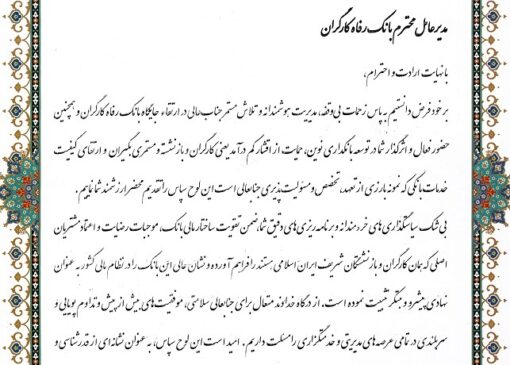 مدیرعامل محترم بانک رفاه کارگران
با نهایت ارادت و احترام،
بر خود فرض دانستیم به پاس زحمات بی‌وقفه، مدیریت هوشمندانه و تلاش مستمر جنابعالی در ارتقاء جایگاه بانک رفاه کارگران و همچنین
حضور فعال و اثرگذار شما در توسعه بانکداری نوین، حمایت از اقشار کم درآمد یعنی کارگران و بازنشسته و مستمری بگیران و ارتقای کیفیت
خدمات بانکی که نمونه بارزی از تعهد، تخصص و مسئولیت‌پذیری جنابعالی است این لوح سپاس را تقدیم محضر ارزشمند شما نماییم.
بی‌شک سیاستگذاری های خردمندانه و برنامه ریزی های دقیق شما، ضمن تقویت ساختار مالی بانک، موجبات رضایت و اعتماد مشتریان
اصلی که همان کارگران و بازنشستگان شریف ایران اسلامی هستند را فراهم آورده و نشان عالی این بانک را در نظام مالی کشور به عنوان
نهادی پیشرو و مبتکر تثبیت نموده است. از درگاه خداوند متعال برای جنابعالی سلامتی، موفقیت‌های بیش از پیش و تداوم پویایی و
سربلندی در تمامی عرصه های مدیریتی و خدمتگزاری را مسئلت داریم. امید است این لوح سپاس، به عنوان نشانه ای از قدرشناسی و